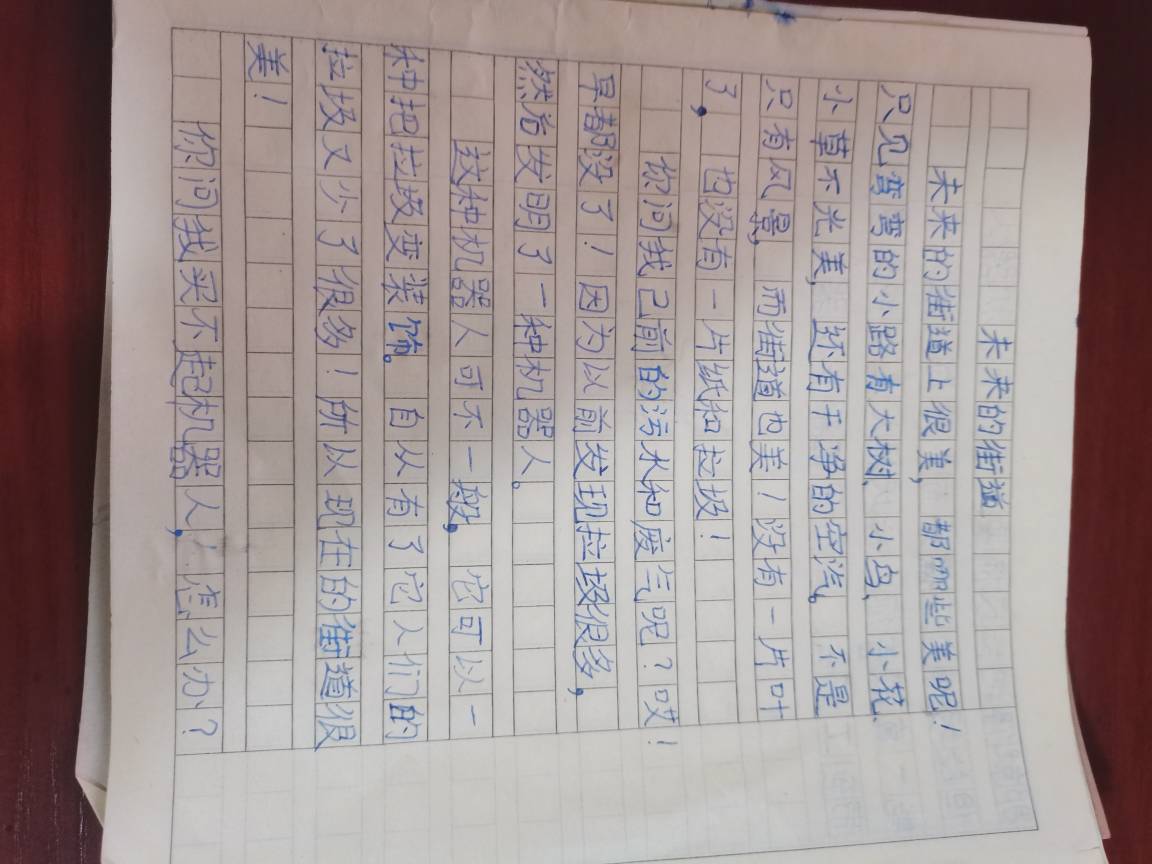 未来的街道
未来的街道上很美，都哪些美呢！
只见弯弯的小路有大树、小鸟、小花、
小草不光美，还有干净的空汽。不是
只有风景，而街道也美！没有一片叶
了，也没有一片纸和垃圾！
你问我已前的污水和废气呢？哎！
早都没了！因为以前发现垃圾很多，
然后发明了一种机器人。
这种机器人可不一般，它可以一
种把垃圾变装饰。自从有了它人们的
垃圾又少了很多！所以现在的街道很
美！
你问我买不起机器人，怎么办？